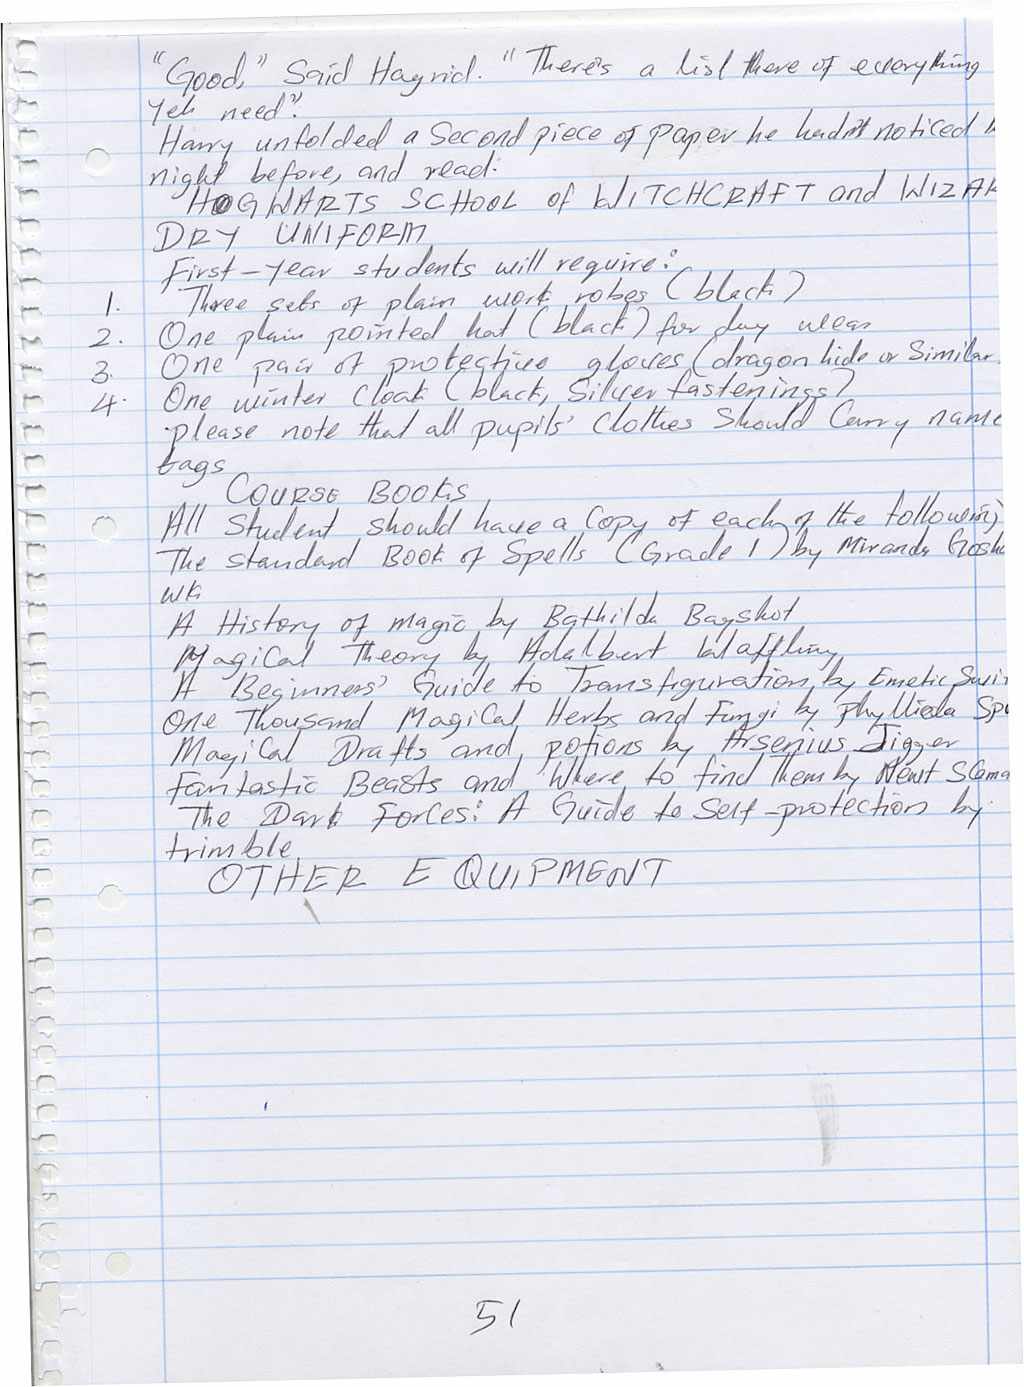 "Good," Said Hagrid. "There's a list there of everything
yeh need".
Harry unfolded a Second piece of paper he hadn't noticed
night before, and read:
HOGWARTS SCHOOL of WITCHCRAFT and WIZAR
DRY UNIFORM
First-year students will require:
1. Three sets of plain work robes (black)
2. One plain pointed hat (black) for day wear
3. One pair of protective gloves (dragon hide or Similar
4. One winter Cloak (black, Silver fastenings)
please note that all pupils' Clothes Should Carry name
tags
COURSE BOOKS
All Student should have a Copy of each of the following
The standard Book of Spells (Grade 1) by Miranda Gosha
wk
A History of magic by Bathilda Bagshot
Magical Theory by Adalbert Waffling
A Beginners' Guide to Transfiguration by Emetic Swit
One Thousand Magical Herbs and Fungi by phyllida Spo
Magical Drafts and potions by Arsenius Jigger
Fantastic Beasts and Where to find them by Newt Scama
The Dark Forces: A Guide to Self-protection by
trimble
OTHER EQUIPMENT
51